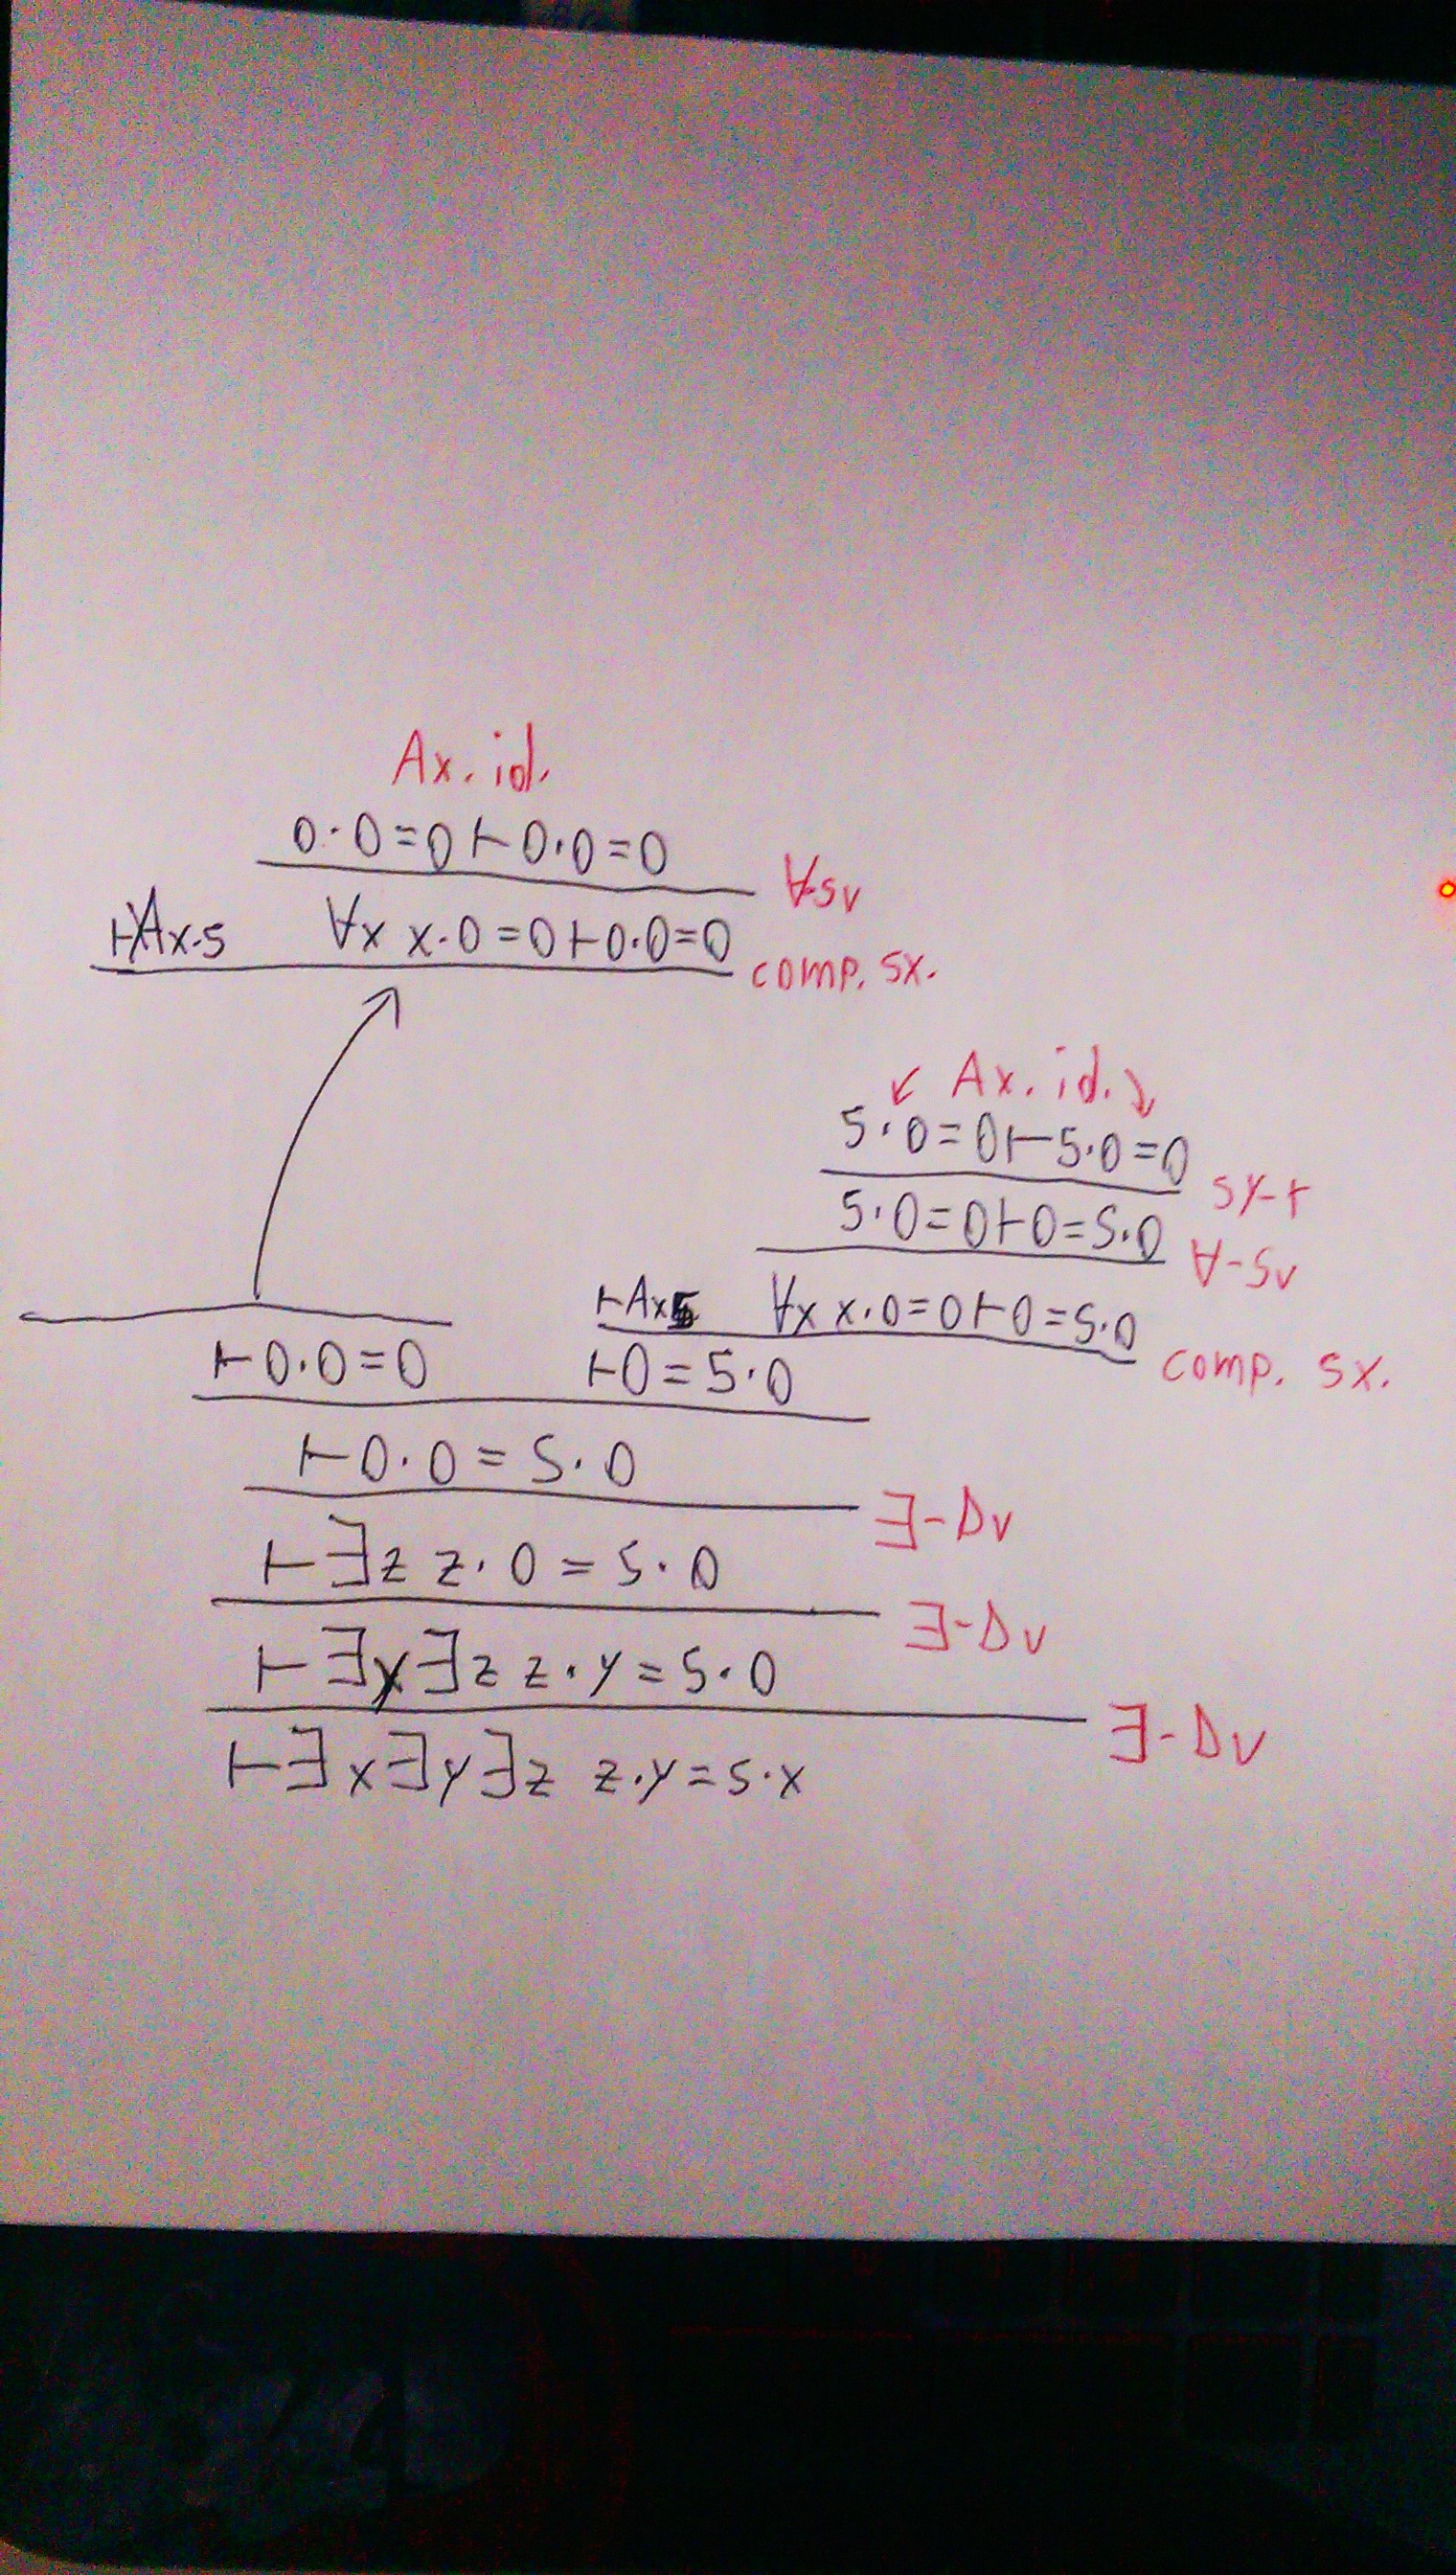 Ax. id.
0·0=0⊢0·0=0
∀sv
⊢Ax.5 ∀x x·0=0⊢0·0=0
comp. sx.
↙ Ax. id. ↘
5·0=0⊢5·0=0
sy-t
5·0=0⊢0=5·0
∀-sv
⊢Ax5 ∀x x·0=0⊢0=5·0
comp. sx.
⊢0·0=0 ⊢0=5·0
⊢0·0=5·0
∃-Δv
⊢∃z z·0=5·0
∃-Δv
⊢∃y∃z z·y=5·0
∃-Δv
⊢∃x∃y∃z z·y=5·x